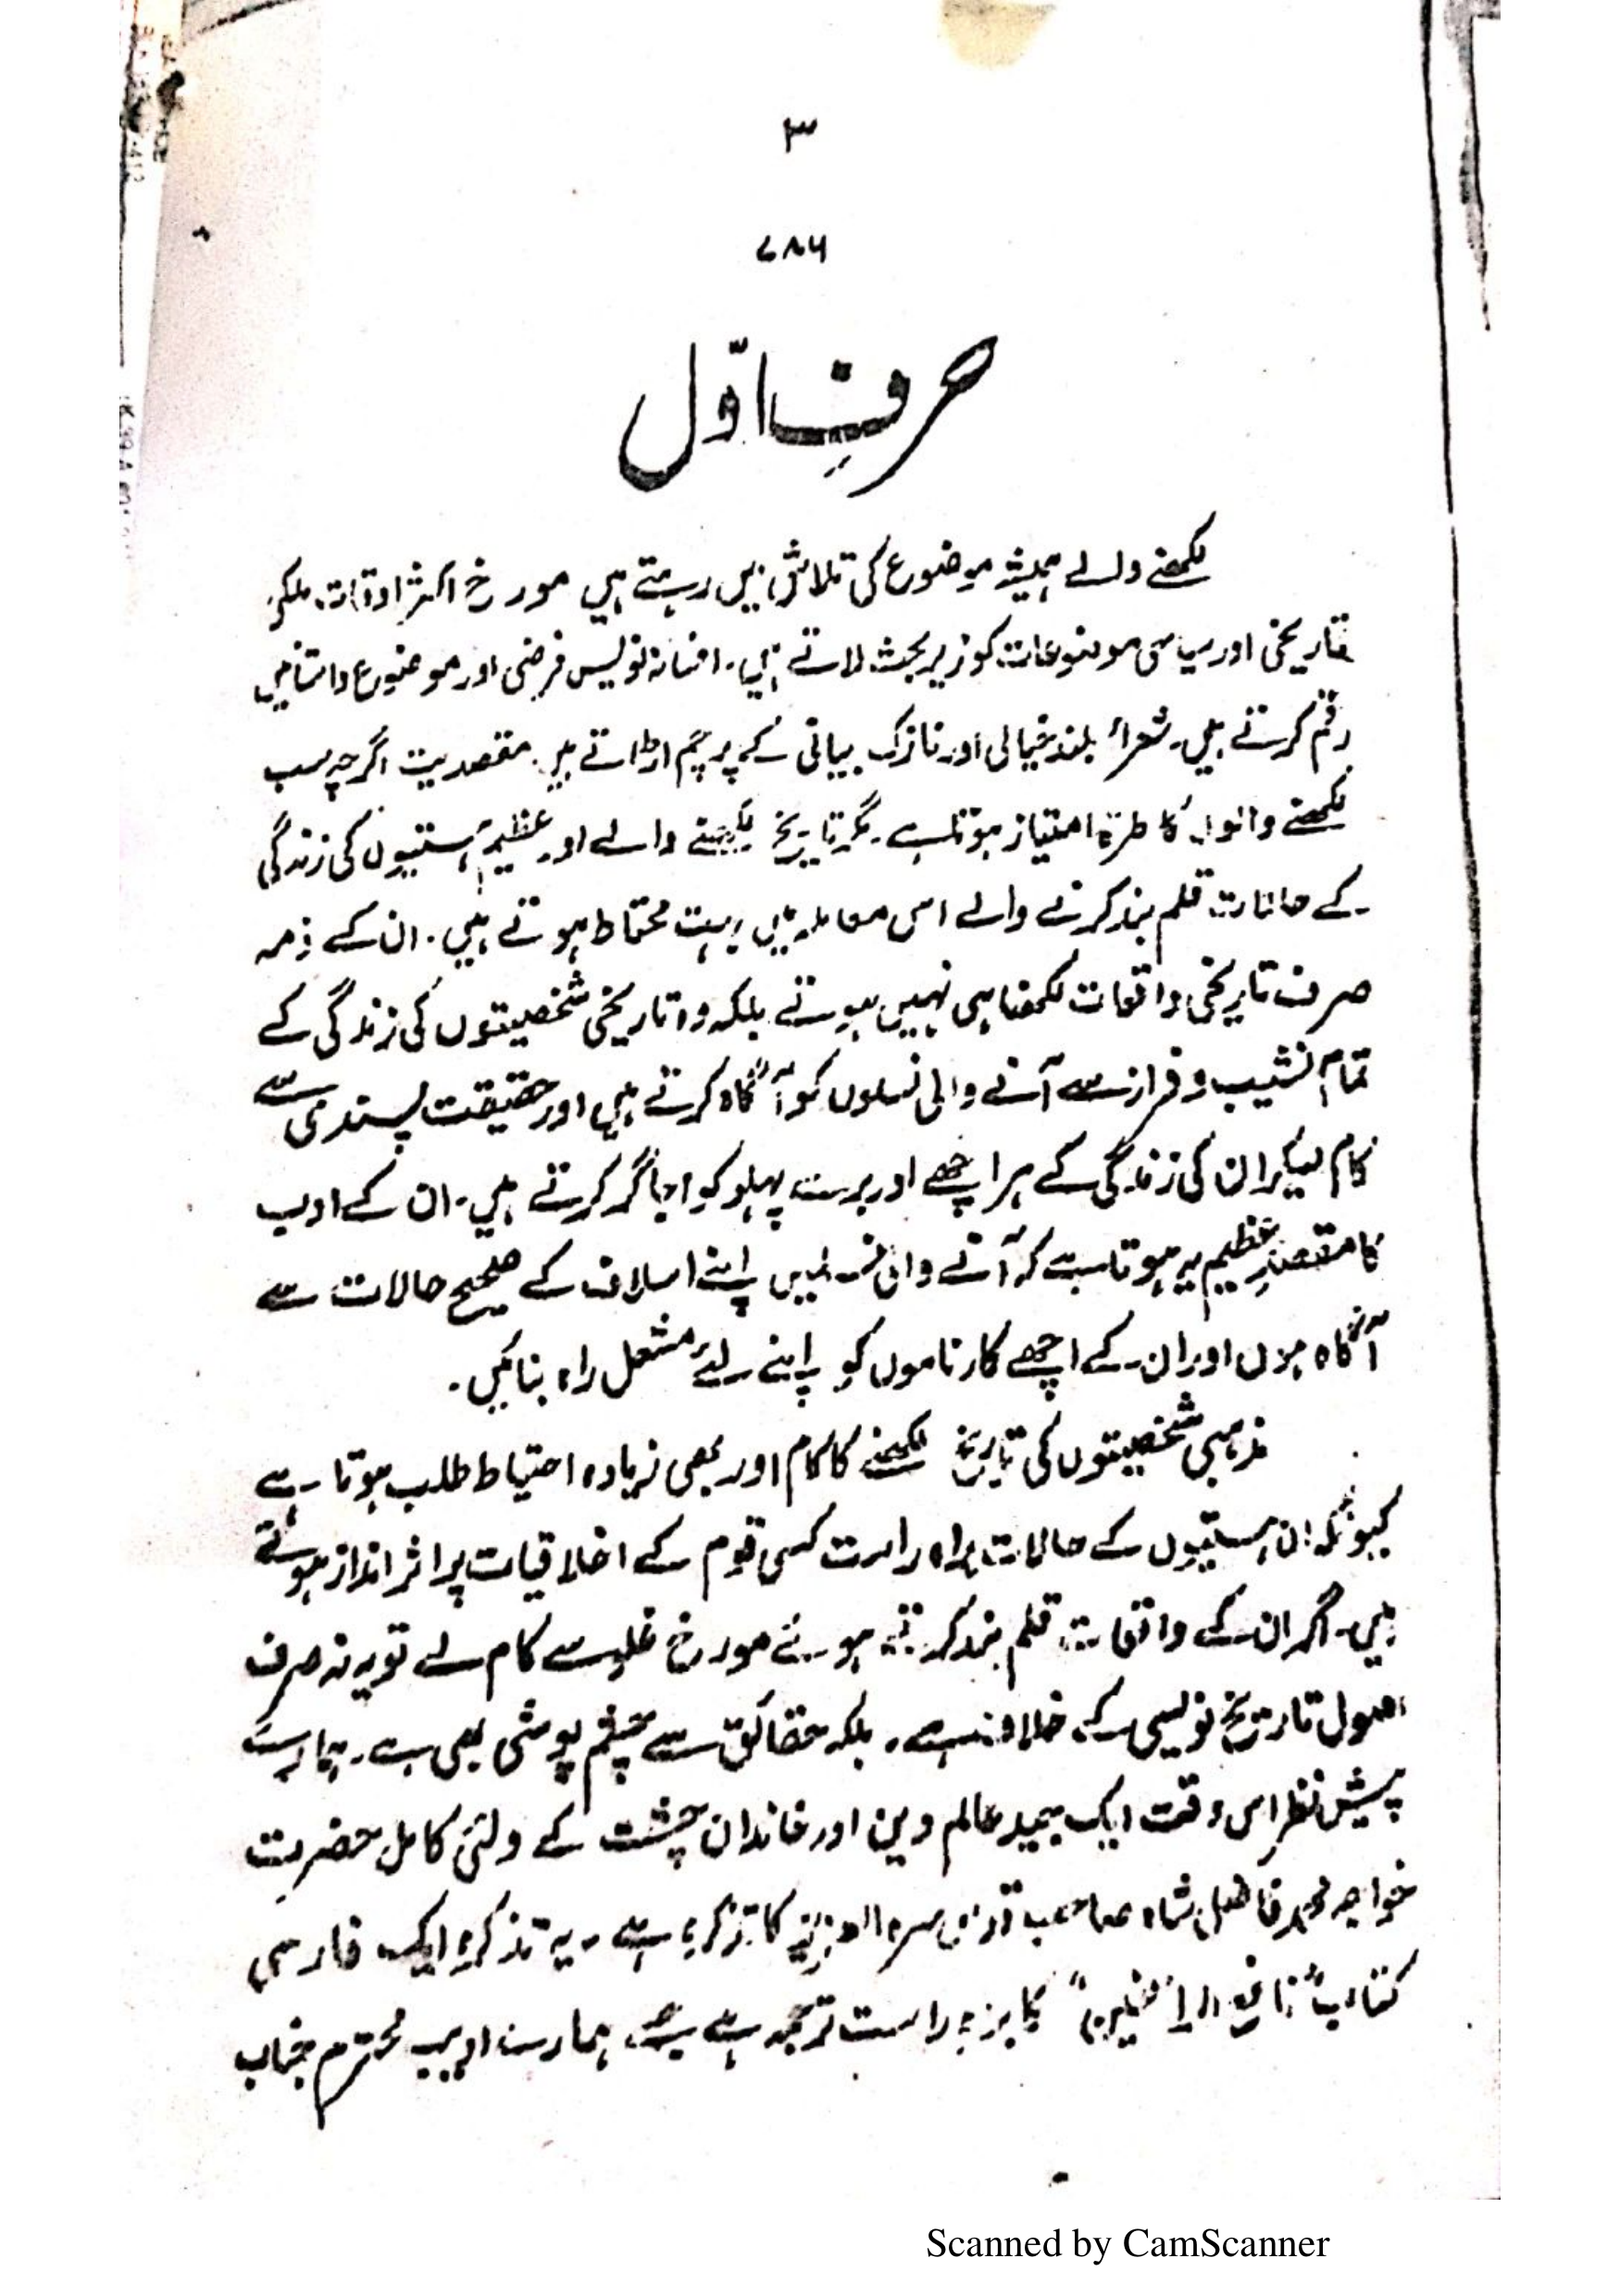 ۳
۷۸۶
حرفِ اوّل
لکھنے والے ہمیشہ موضوع کی تلاش میں رہتے ہیں مورخ اکثر اوقات ملکی
تاریخی اور سیاسی موضوعات کو زیر بحث لاتے ہیں۔ افسانہ نویس فرضی اور موضوع داستانیں
رقم کرتے ہیں۔ شعراء بلند خیالی اور نازک بیانی کے پرچم اڑاتے ہیں۔ مقصدیت اگرچہ سب
لکھنے والوں کا طرۂ امتیاز ہوتا ہے۔ مگر تاریخ لکھنے والے اور عظیم ہستیوں کی زندگی
کے حالات قلم بند کرنے والے اس معاملہ میں بہت محتاط ہوتے ہیں۔ ان کے ذمہ
صرف تاریخی واقعات لکھنا ہی نہیں ہوتے بلکہ وہ تاریخی شخصیتوں کی زندگی کے
تمام نشیب و فراز سے آنے والی نسلوں کو آگاہ کرتے ہیں اور حقیقت پسندی سے
کام لیکر ان کی زندگی کے ہر اچھے اور برے پہلو کو اجاگر کرتے ہیں۔ ان کے ادب
کا مقصدِ عظیم یہ ہوتا ہے کہ آنے والی نسلیں اپنے اسلاف کے صحیح حالات سے
آگاہ ہوں اور ان کے اچھے کارناموں کو اپنے لئے مشعل راہ بنائیں۔
مذہبی شخصیتوں کی تاریخ لکھنے کا کام اور بھی زیادہ احتیاط طلب ہوتا ہے
کیونکہ ان ہستیوں کے حالات براہ راست کسی قوم کے اخلاقیات پر اثر انداز ہوتے
ہیں۔ اگر ان کے واقعات قلم بند کرتے ہوئے مورخ غلو سے کام لے تو یہ نہ صرف
اصول تاریخ نویسی کے خلاف ہے۔ بلکہ حقائق سے چشم پوشی بھی ہے۔ ہمارے
پیش نظر اس وقت ایک جید عالم دین اور خاندان چشت کے ولئی کامل حضرت
خواجہ محمد فاضل شاہ صاحب قدس سرہ العزیز کا تذکرہ ہے۔ یہ تذکرہ ایک فارسی
کتاب "نافع الراغبین" کا براہ راست ترجمہ ہے جسے ہمارے ادیب محترم جناب
Scanned by CamScanner